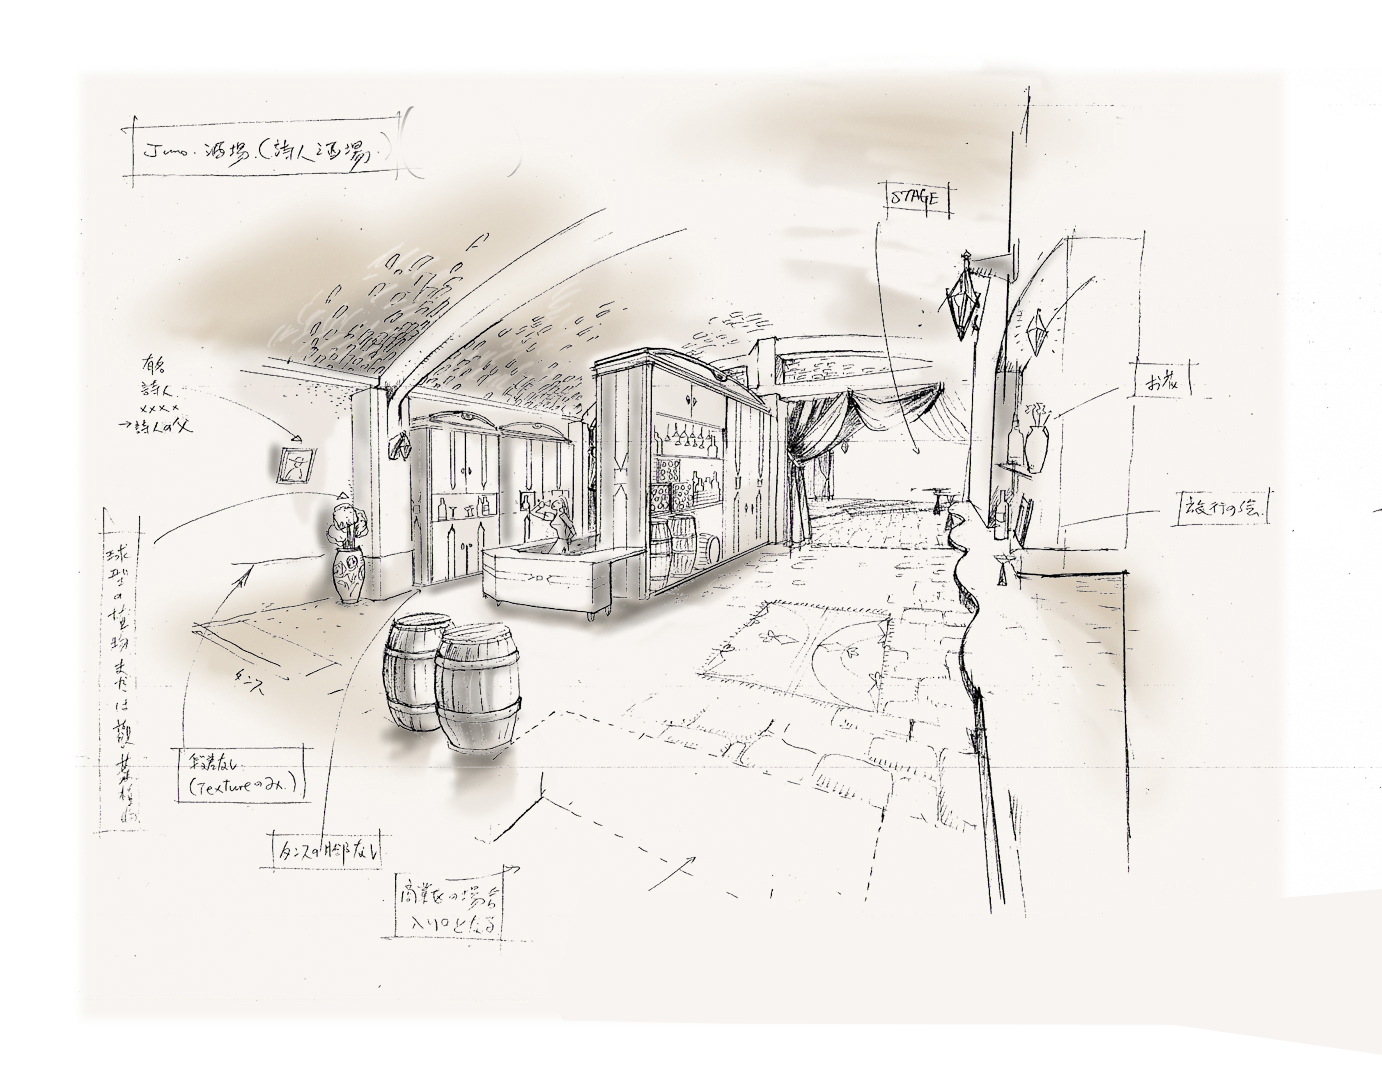 Juno. 酒場.(詩人酒場.)
STAGE
有名
詩人
××××
→詩人の父
お花
旅行の絵.
球型の植物または観葉植物
タンス
段差なし.
(Textureのみ.)
タンスの脚部なし
商業区の場合
入り口となる